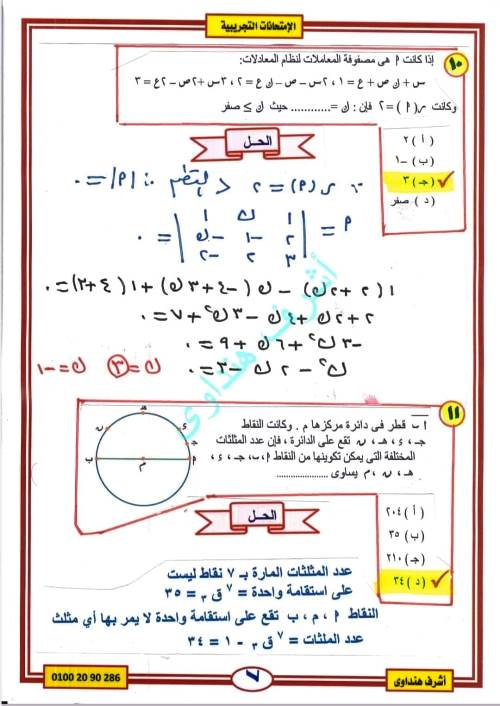 الإمتحانات التجريبية
١٠
إذا كانت م هى مصفوفة المعاملات لنظام المعادلات:
س + ك ص + ع = ١ ، ٢س – ص – ك ع = ٢ ، ٣س + ٢ص – ٢ع = ٣
وكانت ر( م ) = ٢ فإن : ك = ............ حيث ك ≥ صفر
( أ ) ٢
( ب ) –١
( جـ ) ٣ ✓
( د ) صفر
الحـل
∵ ر(م) = ٢ < النظم ∴ |م| = ٠
م = | ١ ك ١ |
| ٢ –١ –ك | = ٠
| ٣ ٢ –٢ |
١(٢ + ٢ك) – ك(–٤ + ٣ك) + ١(٤ + ٣) = ٠
٢ + ٢ك + ٤ك – ٣ك² + ٧ = ٠
–٣ك² + ٦ك + ٩ = ٠
ك² – ٢ك – ٣ = ٠ ك = ٣ ك = –١
أشرف هنداوى
١١
أ ب قطر فى دائرة مركزها م . وكانت النقاط
جـ ، ء ، هـ ، ن تقع على الدائرة ، فإن عدد المثلثات
المختلفة التى يمكن تكوينها من النقاط أ ، ب ، جـ ، ء ،
هـ ، ن ، م يساوى ......................
هـ
ن
ء
جـ
ب
م
أ
( أ ) ٢٠٤
( ب ) ٣٥
( جـ ) ٢١٠
( د ) ٣٤ ✓
الحـل
عدد المثلثات المارة بـ ٧ نقاط ليست
على استقامة واحدة = ⁷ق₃ = ٣٥
النقاط أ ، م ، ب تقع على استقامة واحدة لا يمر بها أي مثلث
عدد الملثات = ⁷ق₃ – ١ = ٣٤
أشرف هنداوى
٧
0100 20 90 286